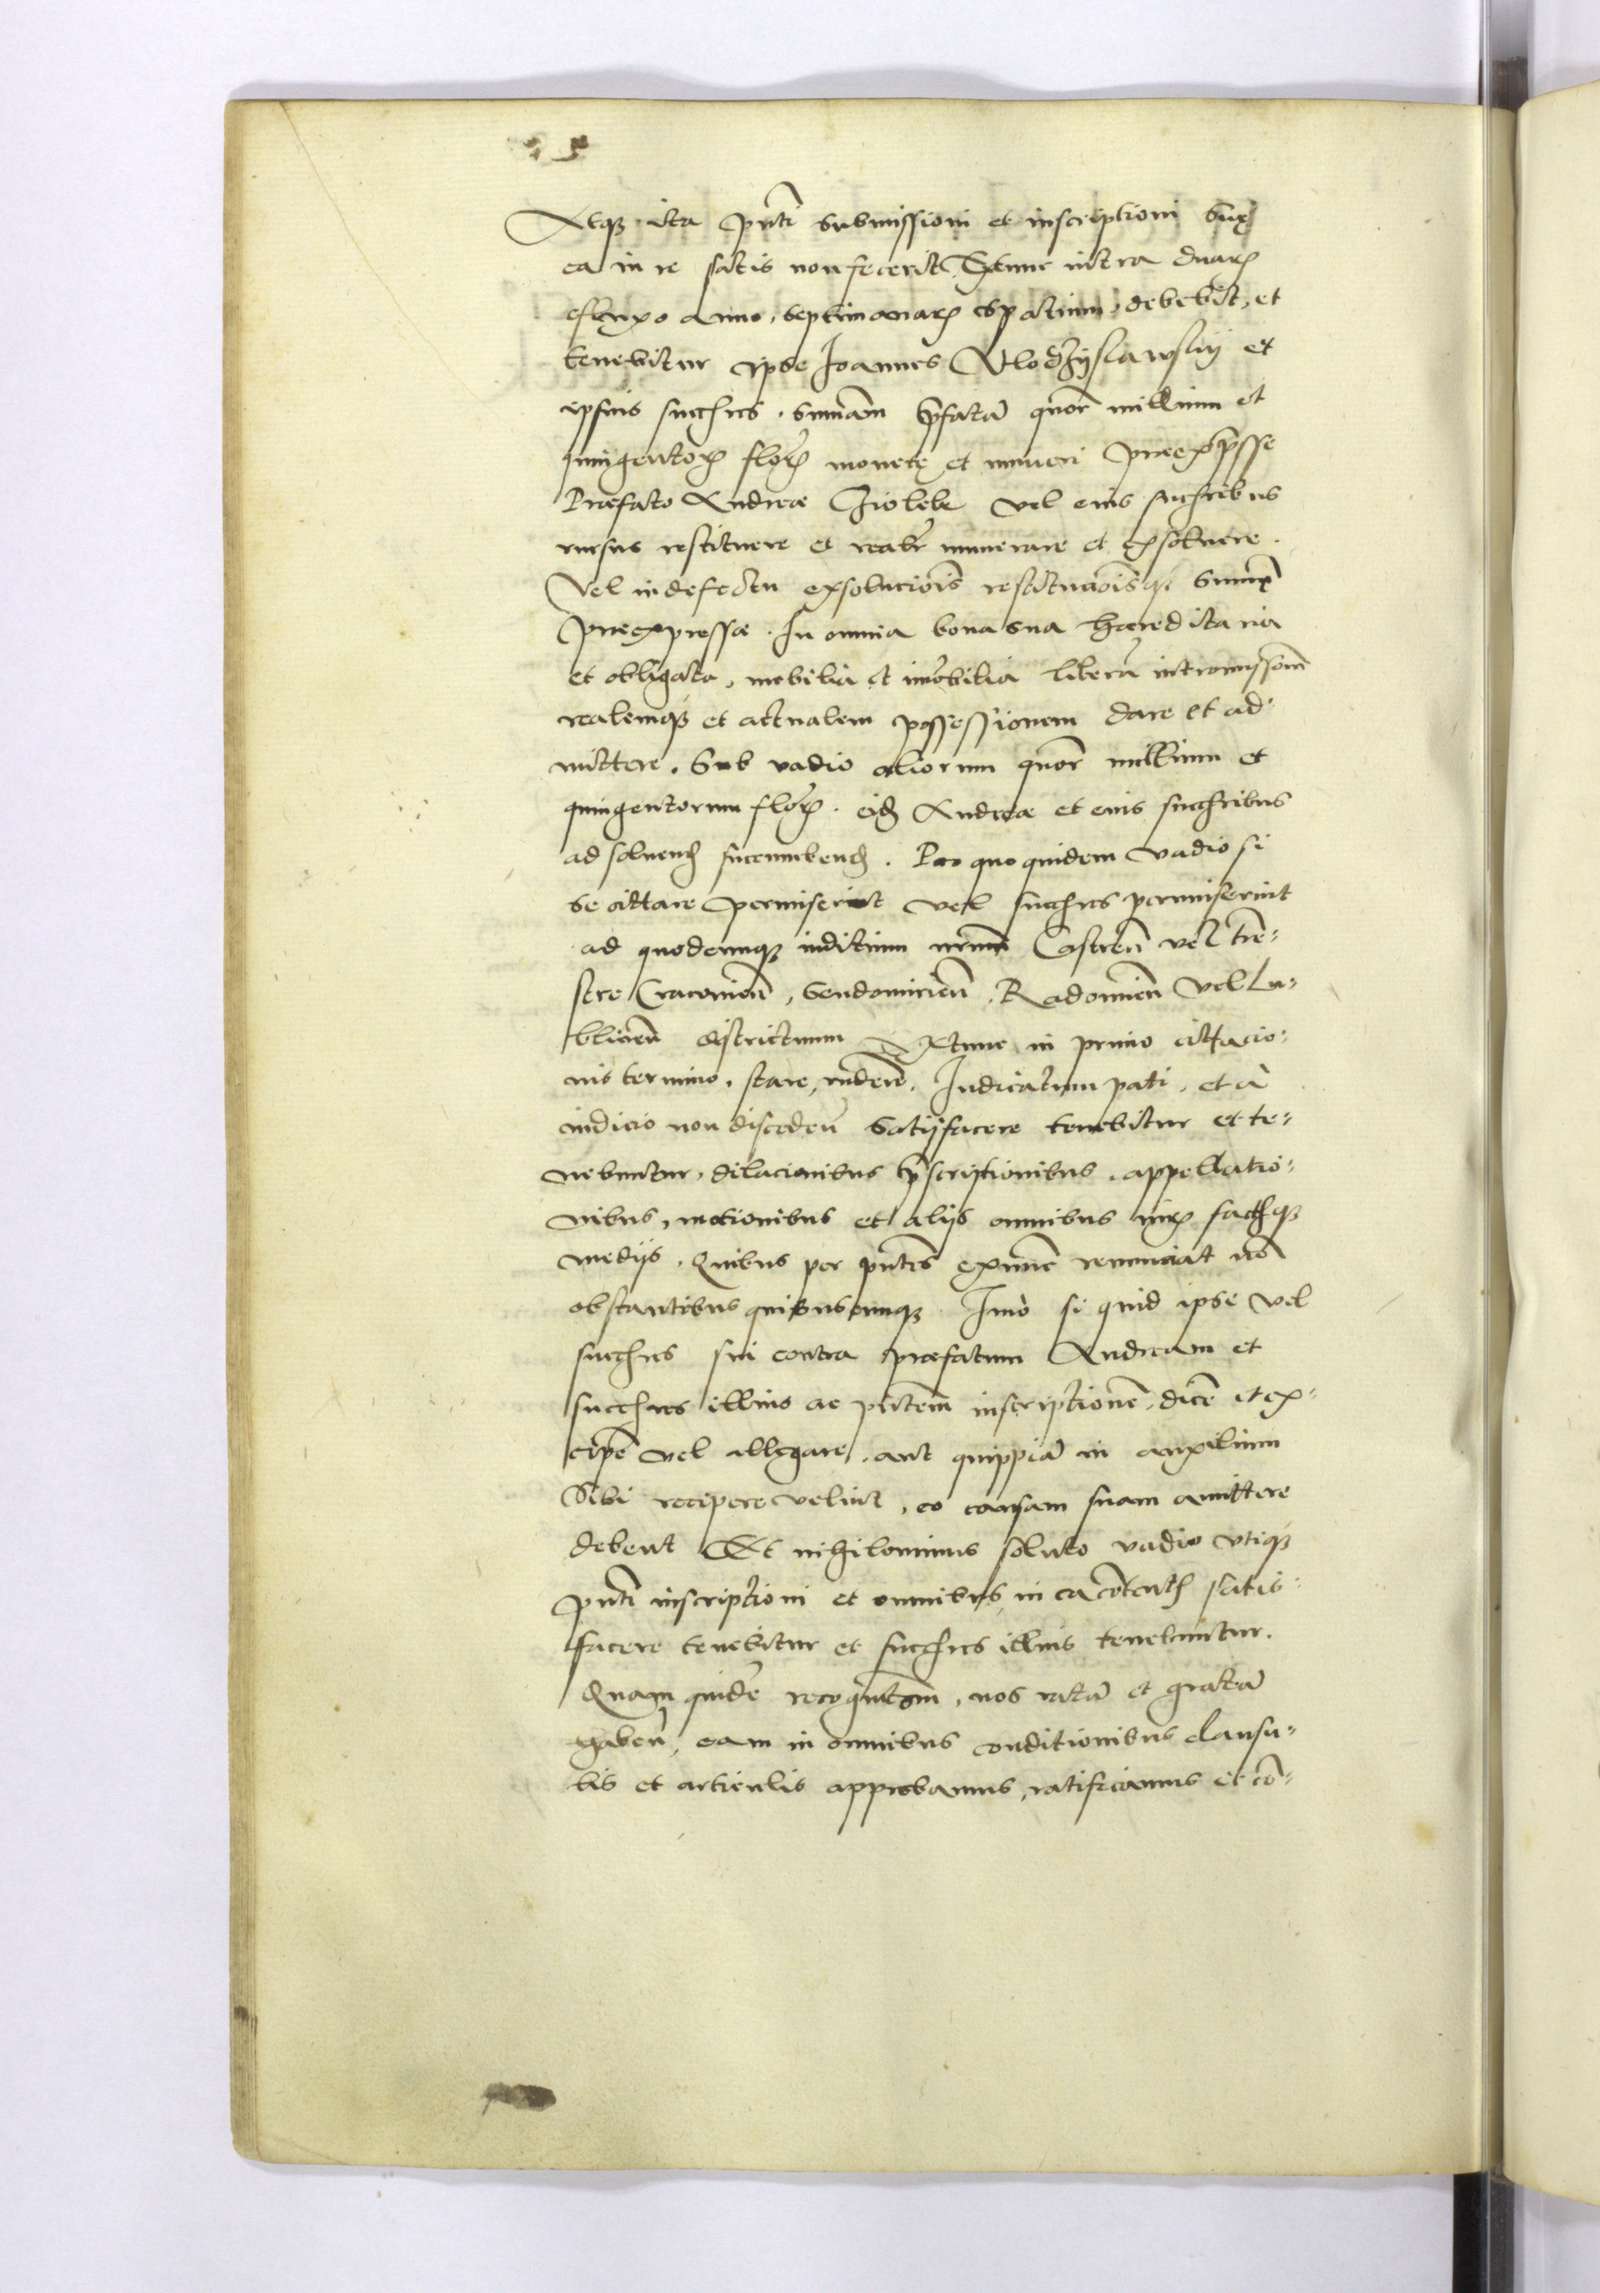 Atq₃ ita pn̄ti submissioni et inscriptioni suę
ea in re satis non fecerit Extunc intra duarꝝ
efluxo anno, septimanarꝝ spatium, debebit, et
tenebitur ipse Joannes Wlodzijslawskij et
ipsius succ̄res, sum̄am p̄fatā quor̄ millium et
quingentorꝝ flor̄ꝝ monetę et numeri praeexp̄sse
Praefato Andreae Ciolek vel eius succ̄ribus
rursus restituere et realr̄ numerare et exsoluere.
Vel in defectu exsoluciōis restituciōisq₃ sum̄ę
praeexpressae. In omnia bona sua haereditaria
et obligata, mobilia et im̄obilia liberā intromissiōnē
realemq₃ et actualem possessionem dare et ad-
mittere. Sub vadio aliorum quor̄ millium et
quingentorum flor̄ꝝ. eidē Andreae et eius succ̄ribus
ad soluend̄ succumbend̄. Pro quo quidem vadio si
se cittare permiserit vel succ̄res permiserint
ad quodcunq₃ iuditium Castren̄ vel trē-
stre Cracouien̄, Sendomirien̄, Radomien̄ vel Lu-
blinen̄ districtuum Extunc in primo cittacio-
nis termino, stare, rn̄dere, Judicatum pati, et à
iudicio non disceden̄ satijsfacere tenebitur et te-
nebuntur, dilacionibus p̄scriptionibus, appellatio-
nibus, motionibus et alijs omnibus iurꝭ factiq₃
medijs, Quibus per pn̄tes exnunc renunciat nō
obstantibus quibuscunq₃. Imò si quid ipse vel
succ̄res sui contra praefatum Andream et
succ̄res illius ac pn̄tem inscriptionē, dicē et ex-
cipē vel allegare, aut quippiā in auxilium
Sibi recipere velint, eo causam suam amittere
debent Et nihilominus soluto vadio vtiq₃
pn̄ti inscriptioni et omnibus in ea cōtentis satis-
facere tenebitur et succ̄res illius tenebuntur.
Quam quidē recognitōm̄, nos ratā et gratā
haben̄, eam in omnibus conditionibus clausu-
lis et articulis approbamus, ratificamus et cō-